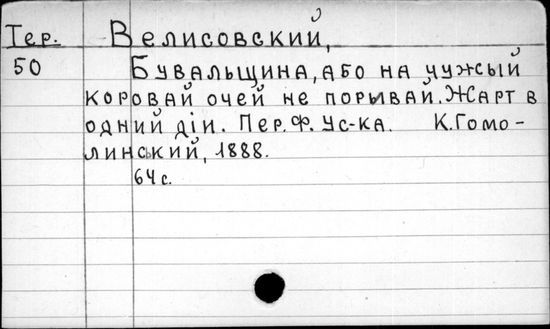 Тер. Велисовский,
50 Бувальщина, або на чужсый
коровай очей не порывай. Жарт в
одний діи. Пер. Ф. Ус-ка. К. Гомо-
линський, 1888.
64 с.